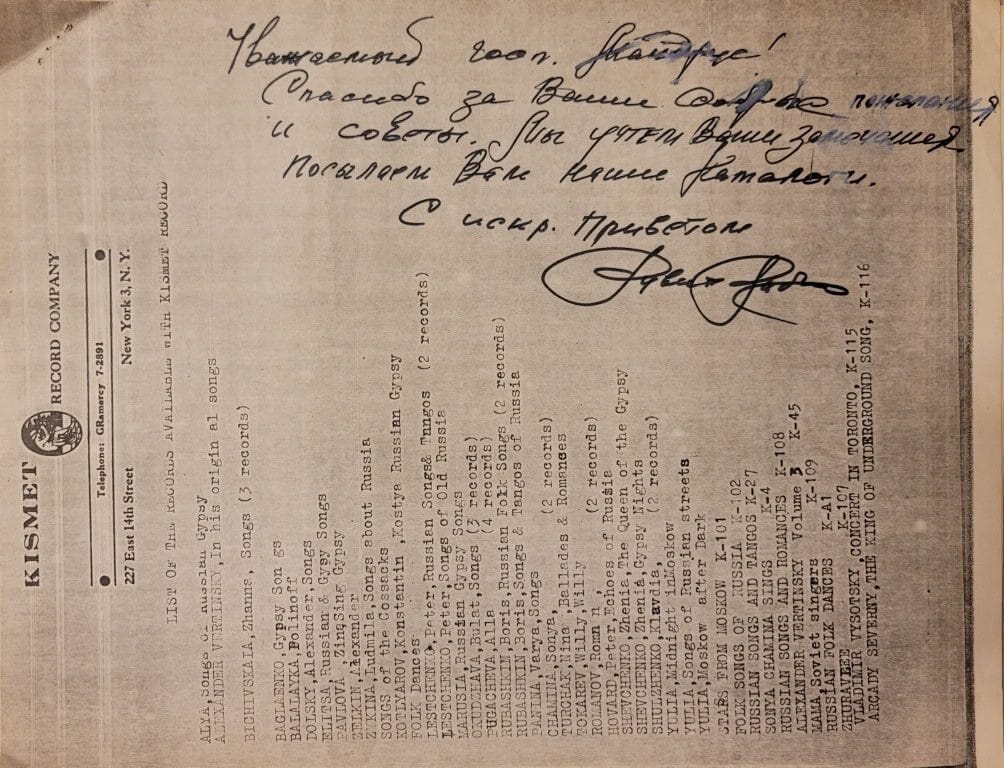 Уважаемый госп.
Спасибо за Ваши добрые пожелания
и советы. Мы учтем Ваши замечания
Посылаем Вам наши каталоги.
С искр. Приветом
KISMET RECORD COMPANY
Telephone: GRamercy 7-2891
227 East 14th Street New York 3, N. Y.
LIST OF THE RECORDS AVAILABLE WITH KISMET RECORD
ALYA,Songs of Russian Gypsy
ALEXANDER VERTINSKY,in his origin al songs
BICHIVSKAIA, Zhanna, Songs (3 records)
BAGLAENKO,Gypsy Son gs
BALALAYKA,Dolinoff
DOLSKY,Alexander,Songs
ELITSA,Russian & Gypsy Songs
PAVLOVA,Zina,Sing Gypsy
ZELKIN,Alexander
ZYKINA, Ludmilla,Songs about Russia
SONGS of the Cossacks
KOTLYAROV,Konstantin Kostya Russian Gypsy
FOLK Dances
LESTCHENKO,Peter,Russian Songs& Tangos (2 records)
LESTCHENKO,Peter,Songs of Old Russia
MARUSIA,Russian Gypsy Songs
OKUDZHAVA,Bulat,Songs (3 records)
PUGACHEVA,Alla (4 records)
RUBASHKIN,Boris,Russian Folk Songs (2 records)
RUBASHKIN,Boris,Songs & Tangos of Russia
PANINA,Varya,Songs
CHAMINA,Sonya, (2 records)
TURCHAK,Nina,Ballades & Romances
TOKAREV,Willy,Willy
ROMANOV,Roman, (2 records)
HOVARD,Peter,Echoes of Russia
SHEVCHENKO,Zhenia,The Queen of the Gypsy
SHEVCHENKO,Zhenia,Gypsy Nights
SHULZHENKO,Klavdia, (2 records)
YULIA,Midnight inMoskow
YULIA,Songs of Russian streets
YULIA,Moskow after Dark
STARS FROM MOSKOW K-101
FOLK SONGS OF RUSSIA K-102
RUSSIAN SONGS AND TANGOS K-27
SONYA CHAMINA SINGS K-4
RUSSIAN SONGS AND ROMANCES K-108
ALEXANDER VERTINSKY Volume 3 K-45
MAMA,Soviet singers K-109
RUSSIAN FOLK DANCES K-A1
ZHURAVLEE K-107
VLADIMIR VYSOTSKY,CONCERT IN TORONTO, K-115
ARCADY SEVERNY,THE KING OF UNDERGROUND SONG, K-116